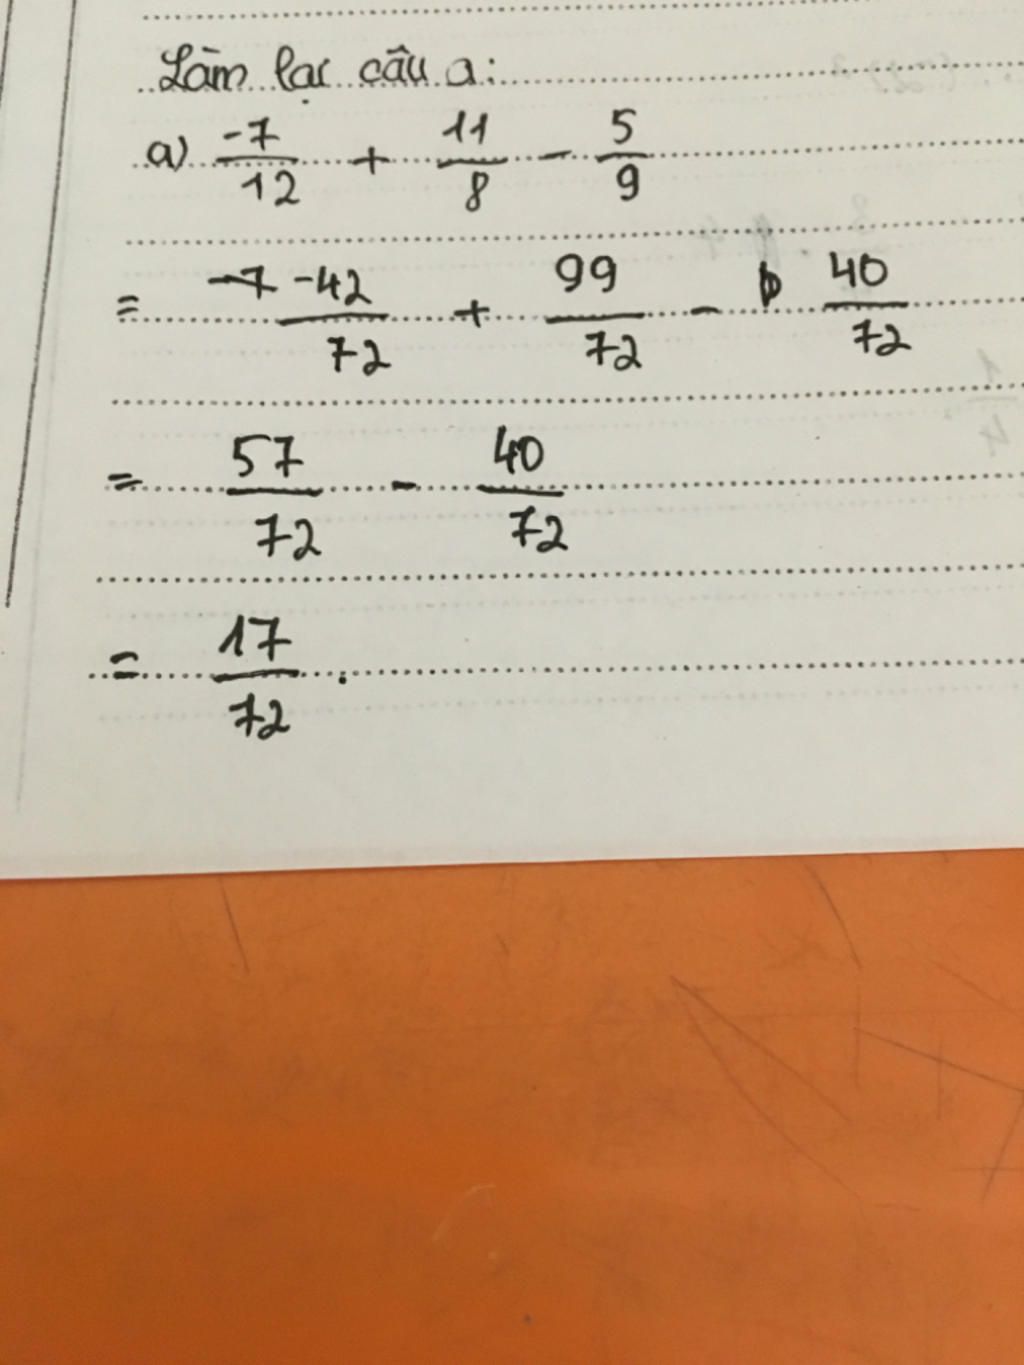 Làm lại câu a:
a) -7/12 + 11/8 - 5/9
= -42/72 + 99/72 - 40/72
= 57/72 - 40/72
= 17/72.